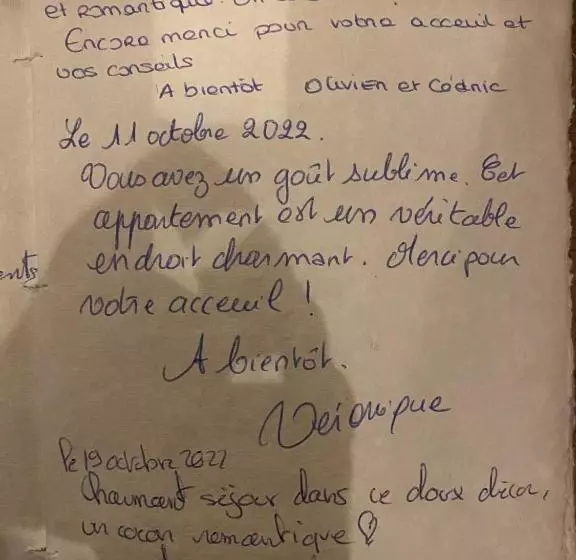 et romantique.
Encore merci pour votre acceuil et
vos conseils
A bientôt Olivier et Cédric
Le 11 octobre 2022.
Vous avez un goût sublime. Cet
appartement est un véritable
ents
endroit charmant. Merci pour
votre acceuil !
A bientôt.
Véronique
Le 19 octobre 2022
Charmant séjour dans ce doux décor,
un cocon romantique